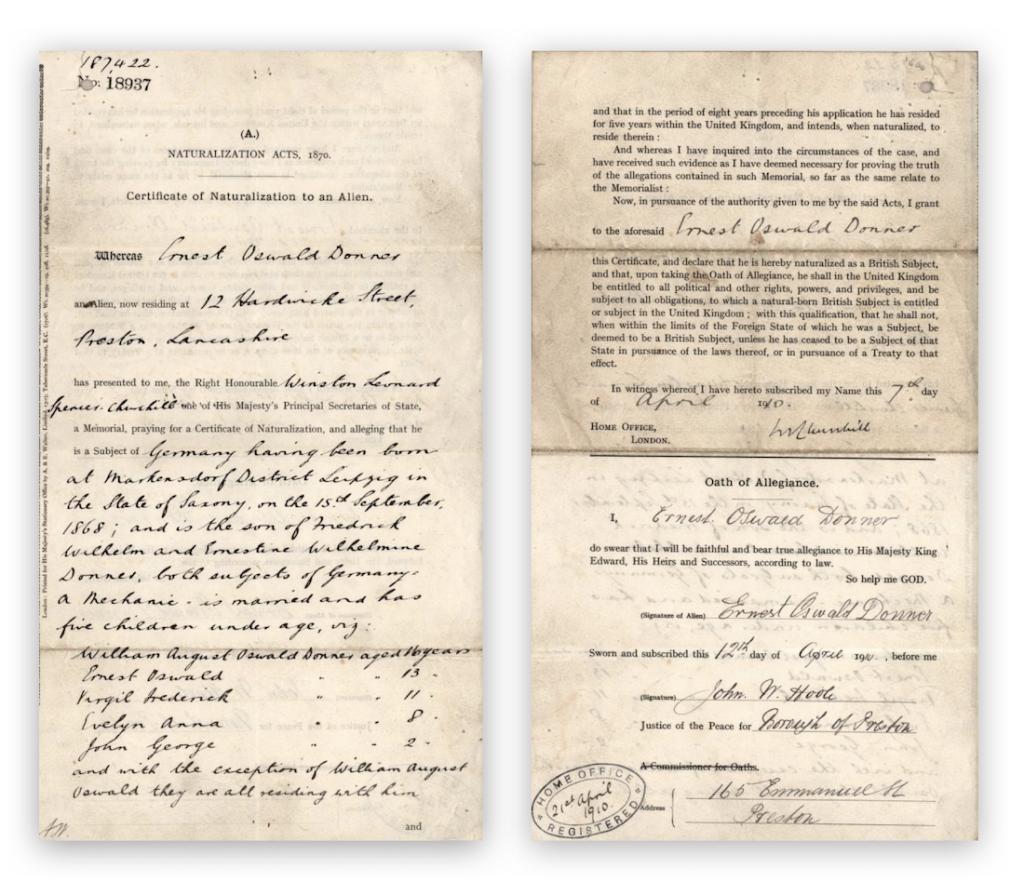 187422.
No. 18937
(A.)
NATURALIZATION ACTS, 1870.
Certificate of Naturalization to an Alien.
Whereas Ernest Oswald Donner
an Alien, now residing at 12 Hardwicke Street,
Preston, Lancashire
has presented to me, the Right Honourable Winston Leonard
Spencer Churchill one of His Majesty's Principal Secretaries of State,
a Memorial, praying for a Certificate of Naturalization, and alleging that he
is a Subject of Germany having been born
at Markersdorf District Leipzig in
the State of Saxony, on the 15th September,
1868; and is the son of Friedrick
Wilhelm and Ernestine Wilhelmine
Donner, both subjects of Germany.
a Mechanic - is married and has
five children under age, viz:
William August Oswald Donner aged 16 years
Ernest Oswald " " 13 "
Virgil Frederick " " 11 "
Evelyn Anna " " 8 "
John George " " 2 "
and with the exception of William August
Oswald they are all residing with him
and
and that in the period of eight years preceding his application he has resided
for five years within the United Kingdom, and intends, when naturalized, to
reside therein :
And whereas I have inquired into the circumstances of the case, and
have received such evidence as I have deemed necessary for proving the truth
of the allegations contained in such Memorial, so far as the same relate to
the Memorialist :
Now, in pursuance of the authority given to me by the said Acts, I grant
to the aforesaid Ernest Oswald Donner
this Certificate, and declare that he is hereby naturalized as a British Subject,
and that, upon taking the Oath of Allegiance, he shall in the United Kingdom
be entitled to all political and other rights, powers, and privileges, and be
subject to all obligations, to which a natural-born British Subject is entitled
or subject in the United Kingdom ; with this qualification, that he shall not,
when within the limits of the Foreign State of which he was a Subject, be
deemed to be a British Subject, unless he has ceased to be a Subject of that
State in pursuance of the laws thereof, or in pursuance of a Treaty to that
effect.
In witness whereof I have hereto subscribed my Name this 7th day
of April 1910.
HOME OFFICE,
LONDON.
W S Churchill
Oath of Allegiance.
I, Ernest Oswald Donner
do swear that I will be faithful and bear true allegiance to His Majesty King
Edward, His Heirs and Successors, according to law.
So help me GOD.
(Signature of Alien) Ernest Oswald Donner
Sworn and subscribed this 12th day of April 1910, before me
(Signature) John W. Hoole
Justice of the Peace for Borough of Preston
A Commissioner for Oaths.
Address 165 Emmanuel St
Preston
HOME OFFICE
21st April
1910.
REGISTERED